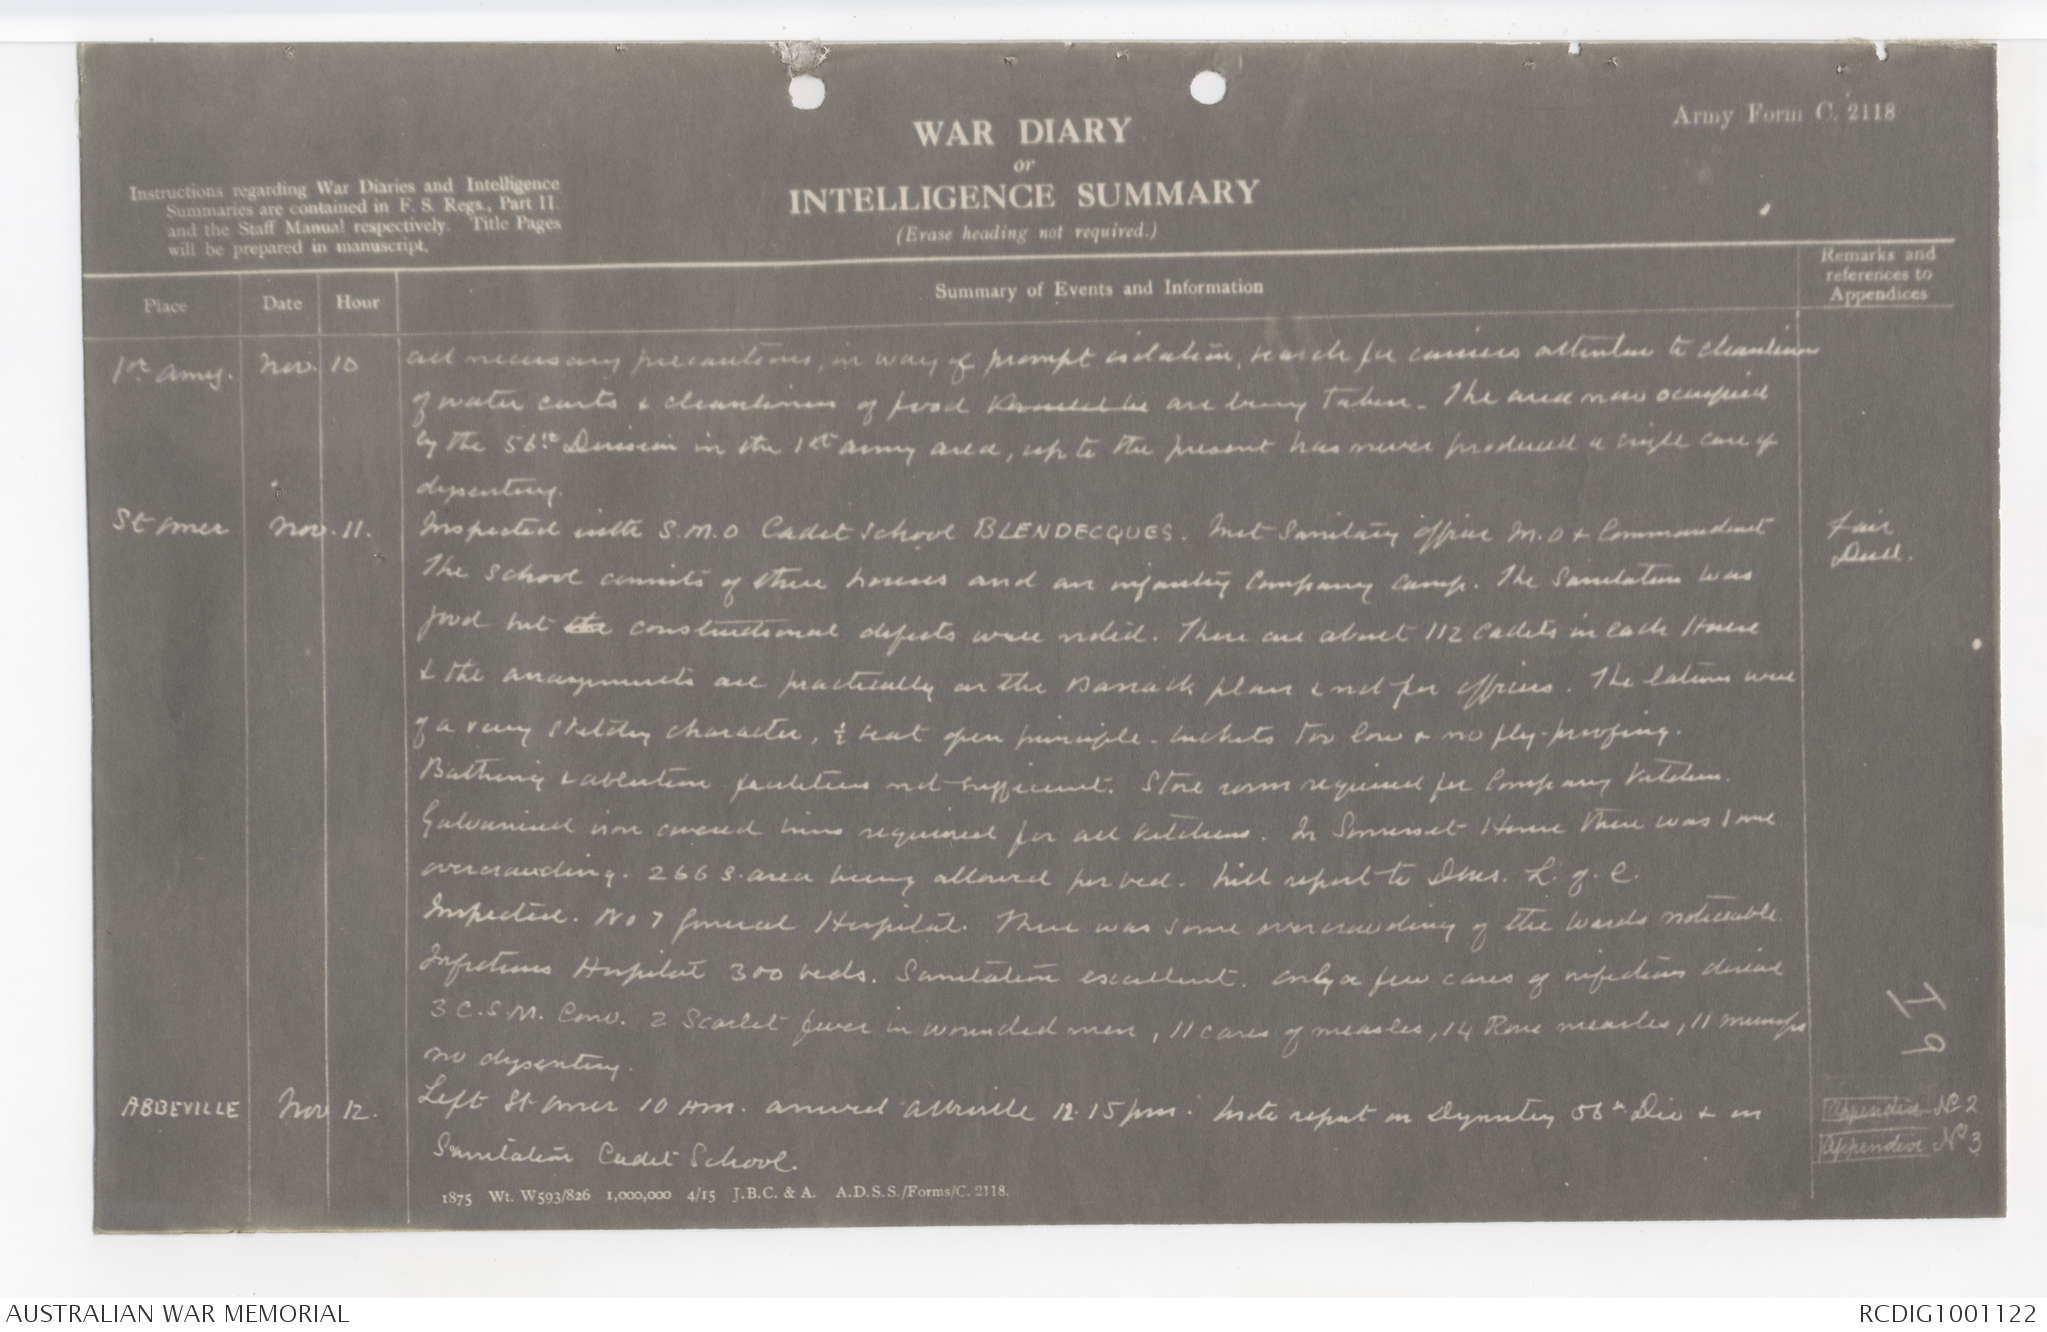 Army Form C. 2118
WAR DIARY
or
INTELLIGENCE SUMMARY
(Erase heading not required.)
Instructions regarding War Diaries and Intelligence
Summaries are contained in F. S. Regs., Part II.
and the Staff Manual respectively. Title Pages
will be prepared in manuscript.
Place Date Hour Summary of Events and Information Remarks and references to Appendices
1st Army. Nov. 10 all necessary precautions, in way of prompt isolation, search for carriers attention to cleanliness
of water carts & cleanliness of food are being taken. The area now occupied
by the 56th Division in the 1st Army area, up to the present has never produced a single case of
dysentery.
St Omer Nov. 11. Inspected with S.M.O Cadet School BLENDECQUES. Met Sanitary Officer M.O & Commandant Fair
Dull.
The School consists of three houses and an infantry Company camp. The Sanitation was
good but the constructional defects were noted. There are about 112 cadets in each House
& the arrangements are practically on the Barrack plan & not for officers. The latrines were
of a very sketchy character, ½ seat open principle. buckets too low & no fly-proofing.
Bathing & ablution facilities not sufficient. Store room required for Company Kitchen.
Galvanised iron covered bins required for all kitchens. In Somerset House there was some
overcrowding. 266 S. area being allowed per bed. Will report to DMS. L. of C.
Inspected. No 7 General Hospital. There was some overcrowding of the wards noticeable.
Infectious Hospital 300 beds. Sanitation excellent. Only a few cases of infectious disease
3 C.S.M. Conv. 2 Scarlet fever in wounded men, 11 cases of measles, 14 Rose measles, 11 mumps
no dysentery.
ABBEVILLE Nov 12. Left St Omer 10 AM. arrived Abbeville 12.15 pm. Wrote report on Dysentery 56th Div & on Appendix No 2
Sanitation Cadet School. Appendix No 3
1875 Wt. W593/826 1,000,000 4/15 J.B.C. & A. A.D.S.S./Forms/C. 2118.
AUSTRALIAN WAR MEMORIAL
RCDIG1001122